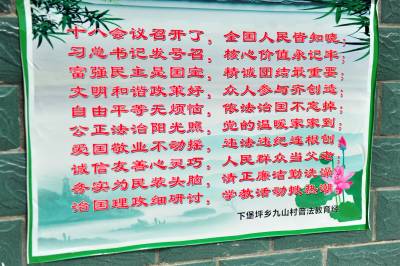 十八会议召开了，全国人民皆知晓；
习总书记发号召，核心价值永记牢；
富强民主是国定，精诚团结最重要；
文明和谐政策好，众人参与齐创造；
自由平等无烦恼，依法治国不忘掉；
公正法治阳光照，党的温暖家家到；
爱国敬业不动摇，违法违纪连根刨；
诚信友善心灵巧，人民群众当父老；
务实为民装头脑，清正廉洁勤洗澡；
治国理政细研讨，学教活动掀热潮。
下堡坪乡九山村普法教育